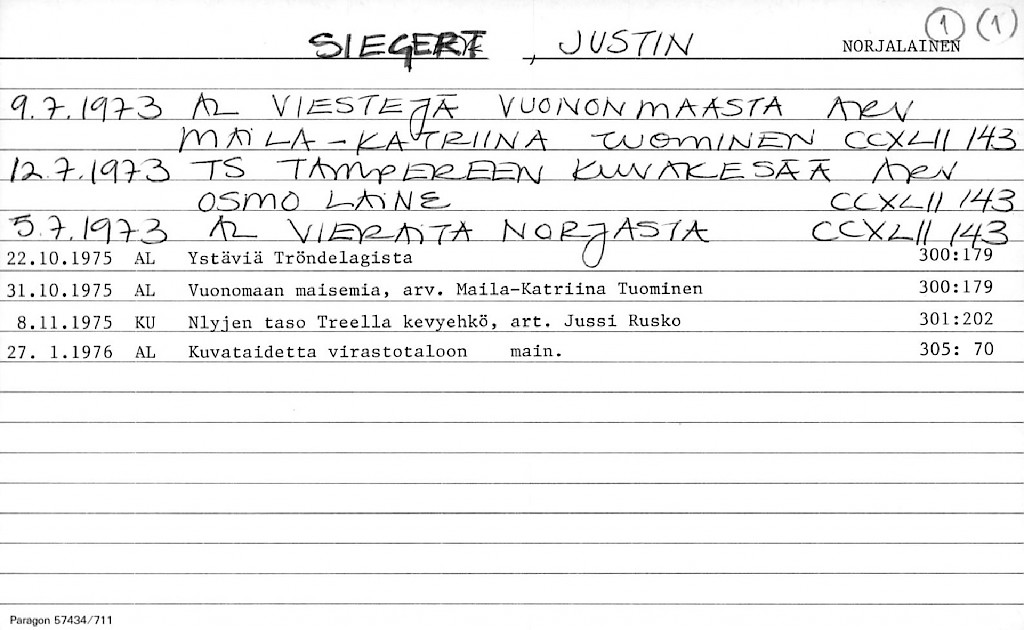 SIEGERT, JUSTIN NORJALAINEN 1 (1)
9.7.1973 AL VIESTEJÄ VUONONMAASTA ARV
MAILA-KATRIINA TUOMINEN CCXLII 143
12.7.1973 TS TAMPEREEN KUVAKESÄÄ ARV
OSMO LAINE CCXLII 143
5.7.1973 AL VIERAITA NORJASTA CCXLII 143
22.10.1975 AL Ystäviä Tröndelagista 300:179
31.10.1975 AL Vuonomaan maisemia, arv. Maila-Katriina Tuominen 300:179
8.11.1975 KU Nlyjen taso Treella kevyehkö, art. Jussi Rusko 301:202
27. 1.1976 AL Kuvataidetta virastotaloon main. 305: 70
Paragon 57434/711